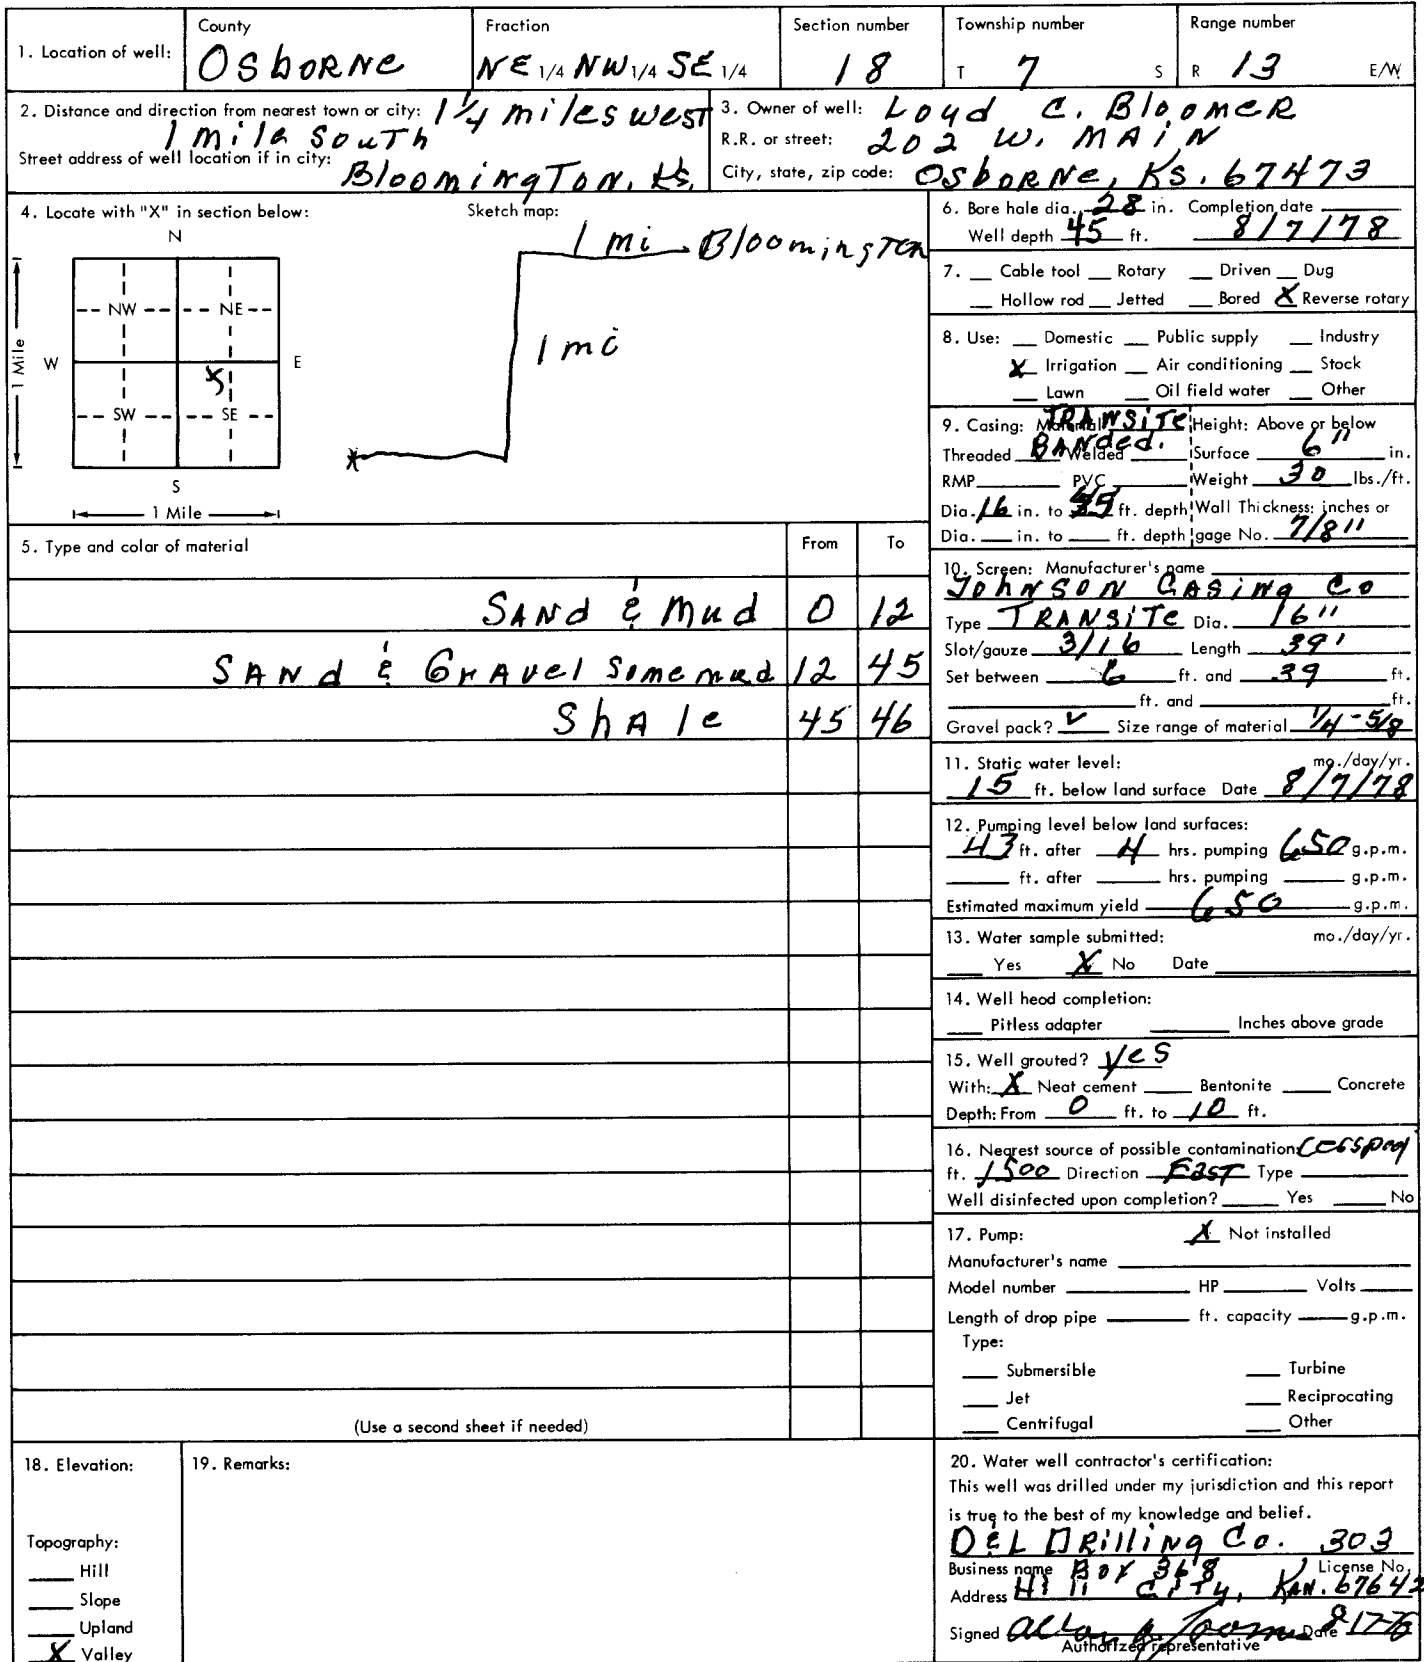 1. Location of well:
County
OSbORNe
Fraction
NE 1/4 NW 1/4 SE 1/4
Section number
18
Township number
T 7 S
Range number
R 13 E/W
2. Distance and direction from nearest town or city: 1 1/4 miles west
1 mile South
Street address of well location if in city:
BloomingTon, Ks.
3. Owner of well: Loyd C. BloomeR
R.R. or street: 202 W. MAiN
City, state, zip code: OsboRNe, Ks. 67473
4. Locate with "X" in section below:
N
NW NE
W E
X
SW SE
S
1 Mile
1 Mile
Sketch map:
1 mi Bloomington
1 mi
5. Type and color of material From To
SANd & Mud 0 12
SANd & GrAvel Some mud 12 45
ShAle 45 46
(Use a second sheet if needed)
6. Bore hole dia. 28 in. Completion date
Well depth 45 ft. 8/7/78
7. Cable tool Rotary Driven Dug
Hollow rod Jetted Bored X Reverse rotary
8. Use: Domestic Public supply Industry
X Irrigation Air conditioning Stock
Lawn Oil field water Other
9. Casing: Material TRANSiTe Height: Above or below
Threaded BANded. Welded Surface 6" in.
RMP PVC Weight 30 lbs./ft.
Dia. 16 in. to ft. depth Wall Thickness: inches or
Dia. in. to ft. depth gage No. 7/8"
10. Screen: Manufacturer's name
JohNSON CASiNg Co
Type TRANSiTe Dia. 16"
Slot/gauze 3/16 Length 39'
Set between 6 ft. and 39 ft.
ft. and ft.
Gravel pack? ✓ Size range of material 1/4 - 5/8
11. Static water level: mo./day/yr.
15 ft. below land surface Date 8/7/78
12. Pumping level below land surfaces:
43 ft. after 4 hrs. pumping 650 g.p.m.
ft. after hrs. pumping g.p.m.
Estimated maximum yield 650 g.p.m.
13. Water sample submitted: mo./day/yr.
Yes X No Date
14. Well head completion:
Pitless adapter Inches above grade
15. Well grouted? yes
With: X Neat cement Bentonite Concrete
Depth: From 0 ft. to 10 ft.
16. Nearest source of possible contamination: Cesspool
ft. 1500 Direction EasT Type
Well disinfected upon completion? Yes No
17. Pump: X Not installed
Manufacturer's name
Model number HP Volts
Length of drop pipe ft. capacity g.p.m.
Type:
Submersible Turbine
Jet Reciprocating
Centrifugal Other
18. Elevation:
Topography:
Hill
Slope
Upland
X Valley
19. Remarks:
20. Water well contractor's certification:
This well was drilled under my jurisdiction and this report
is true to the best of my knowledge and belief.
D&L DRilling Co. 303
Business name Box 368 License No.
Address Hill CiTy, KAN. 67642
Signed Date
Authorized representative